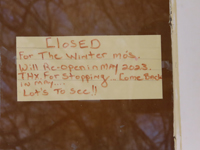 CLOSED
For The Winter mo's.
Will Re-open in MAY 2023.
TNX For Stopping... Come Back
in MAY....
Lot's To See!!